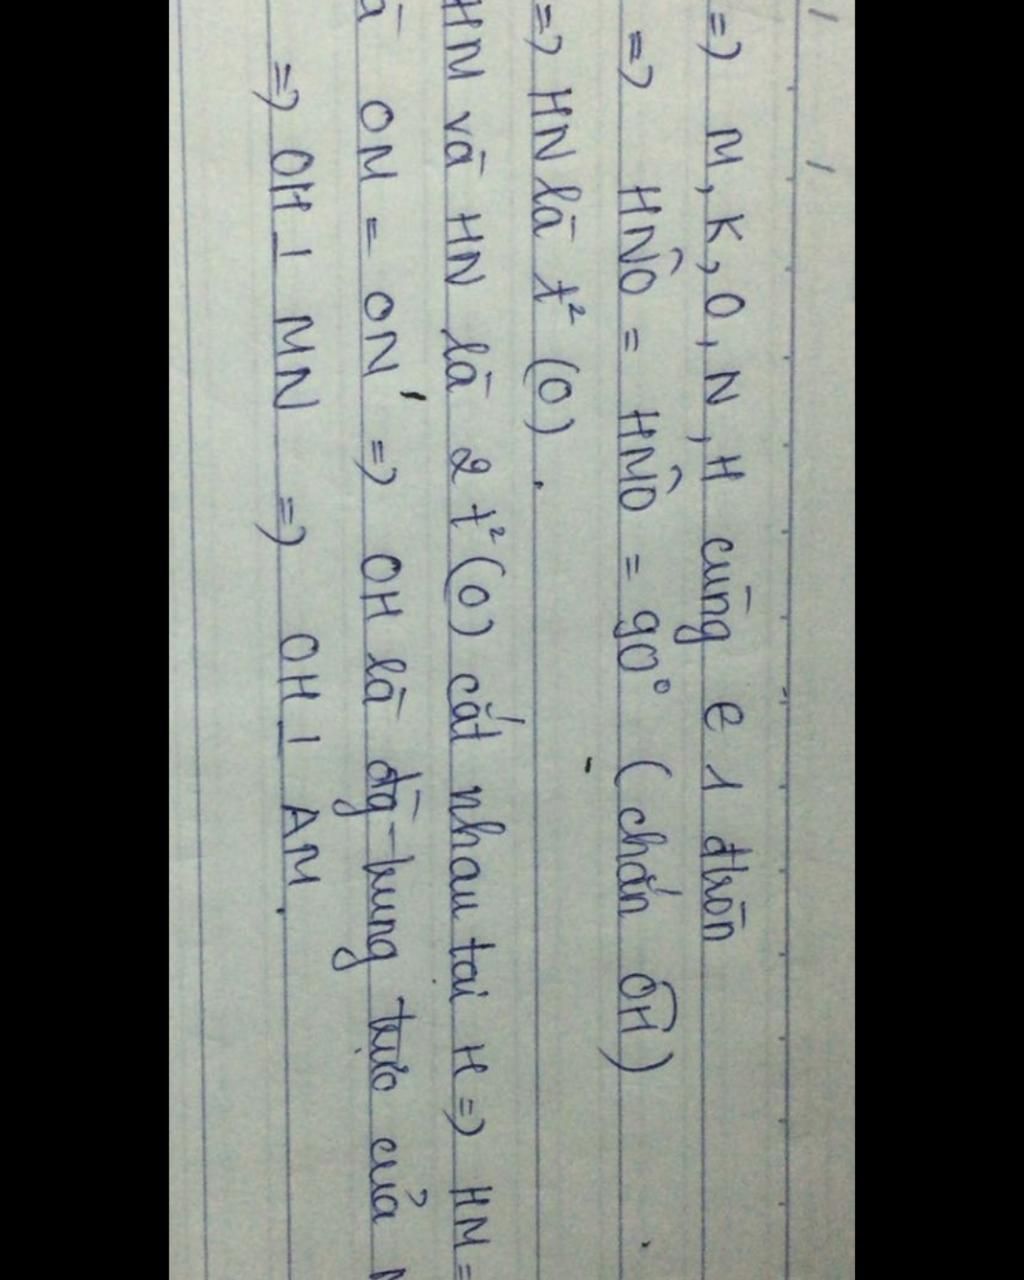 => M, K, O, N, H cùng e 1 đtròn
=> HN̂O = HM̂O = 90° (chắn OH)
=> HN là t² (O).
HM và HN là 2 t² (O) cắt nhau tại H => HM =
à OM = ON => OH là đg trung trực của
=> OH ⊥ MN => OH ⊥ AM.